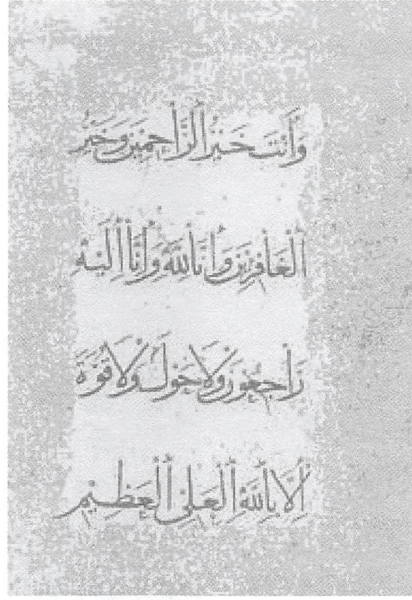 وَأَنتَ خَيْرُ ٱلرَّاحِمِينَ وَخَيْرُ
ٱلْغَافِرِينَ وَإِنَّا لِلَّهِ وَإِنَّا إِلَيْهِ
رَاجِعُونَ وَلَا حَوْلَ وَلَا قُوَّةَ
إِلَّا بِٱللَّهِ ٱلْعَلِيِّ ٱلْعَظِيمِ